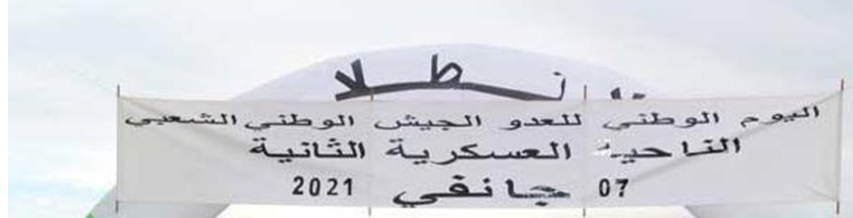 اليوم الوطني للعدو الجيش الوطني الشعبي
الناحية العسكرية الثانية
07 جانفي 2021